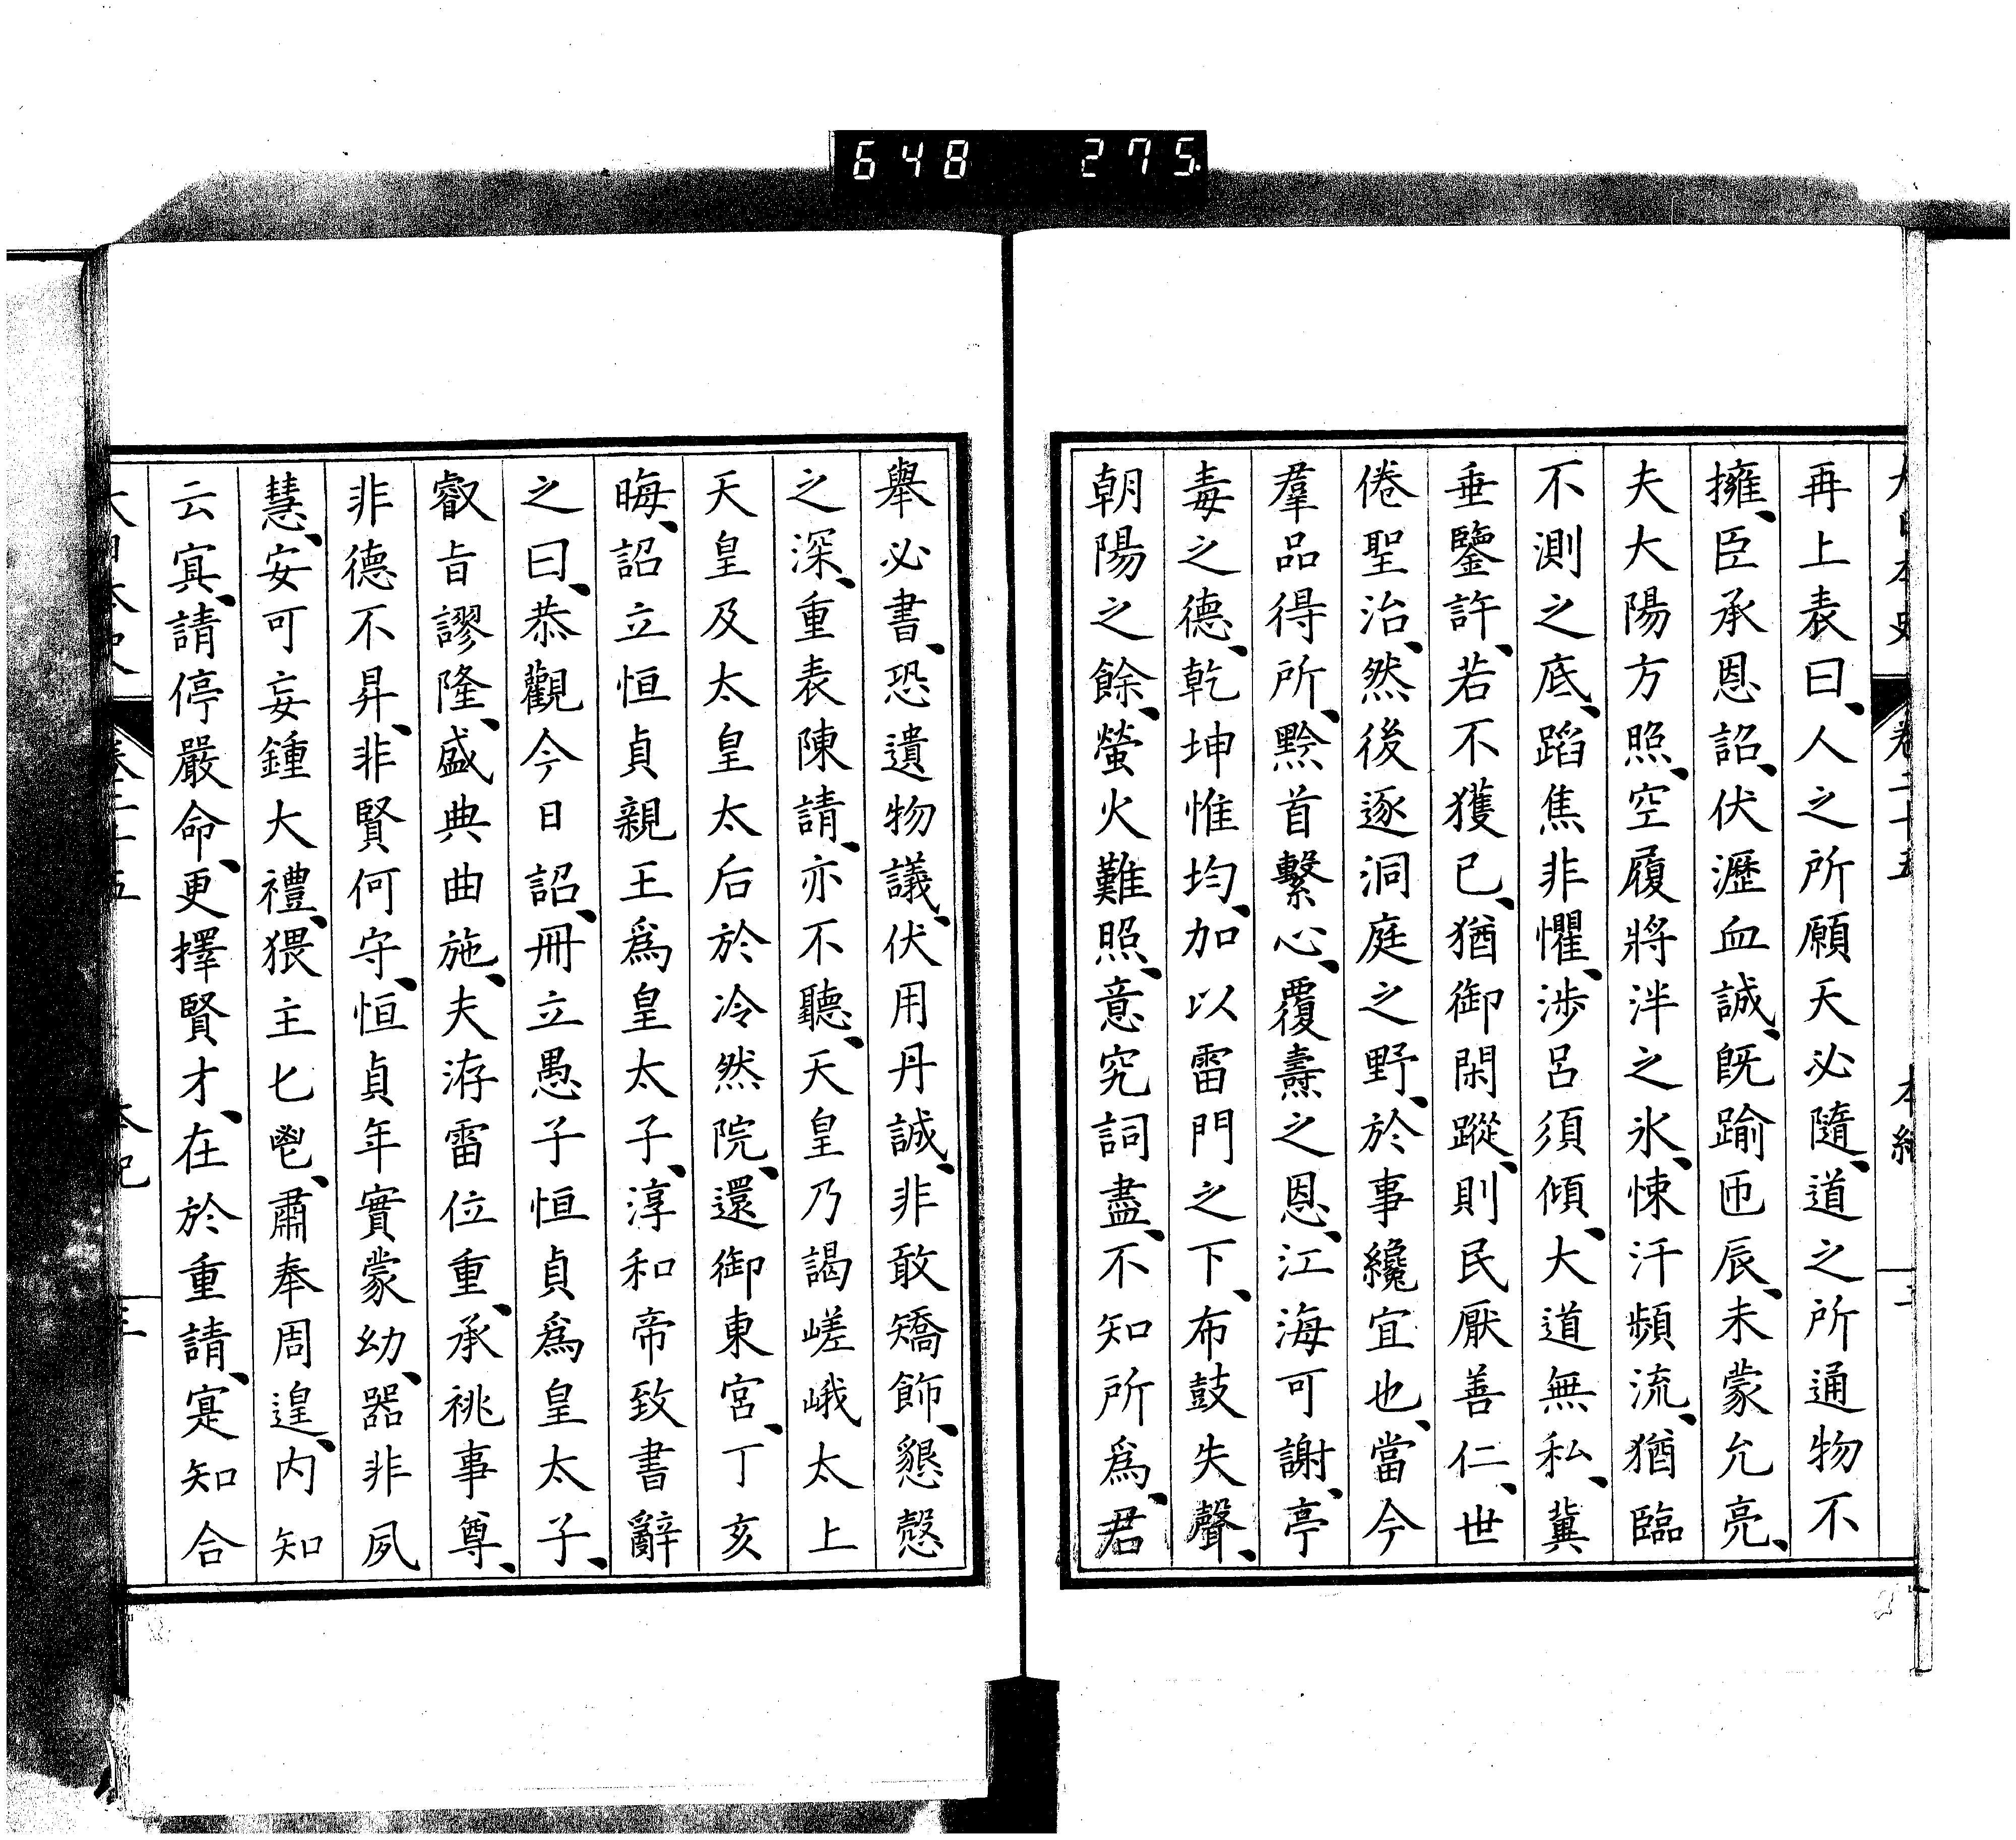 648 275
再上表曰、人之所願天必隨、道之所通物不
擁、臣承恩詔、伏瀝血誠、旣踰匝辰、未蒙允亮、
夫大陽方照、空履將泮之氷、悚汗頻流、猶臨
不測之底、蹈焦非懼、渉呂須傾、大道無私、冀
垂鑒許、若不獲已、猶御閑蹤、則民厭善仁、世
倦聖治、然後逐洞庭之野、於事纔宜也、當今
羣品得所、黔首繫心、覆燾之恩、江海可謝、亭
毒之德、乾坤惟均、加以雷門之下、布鼓失聲、
朝陽之餘、螢火難照、意究詞盡、不知所爲、君
擧必書、恐遺物議、伏用丹誠、非敢矯飾、懇愨
之深、重表陳請、亦不聽、天皇乃謁嵯峨太上
天皇及太皇太后於冷然院、還御東宮、丁亥
晦、詔立恒貞親王爲皇太子、淳和帝致書辭
之曰、恭觀今日詔、冊立愚子恒貞爲皇太子、
叡旨謬隆、盛典曲施、夫洊雷位重、承祧事尊、
非德不昇、非賢何守、恒貞年實蒙幼、器非夙
慧、安可妄鍾大禮、猥主匕鬯、肅奉周遑、內知
云寘、請停嚴命、更擇賢才、在於重請、寔知合
大日本史 卷二十五 本紀 三